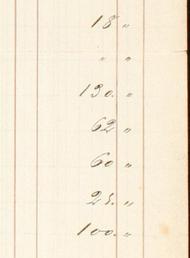 18 "
" "
130. "
62 "
60 "
25. "
100. "